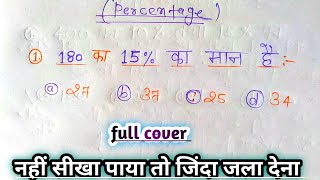 (Percentage)
① 180 का 15% का मान है :-
ⓐ 27 ⓑ 37 ⓒ 25 ⓓ 34
full cover
नहीं सीखा पाया तो जिंदा जला देना